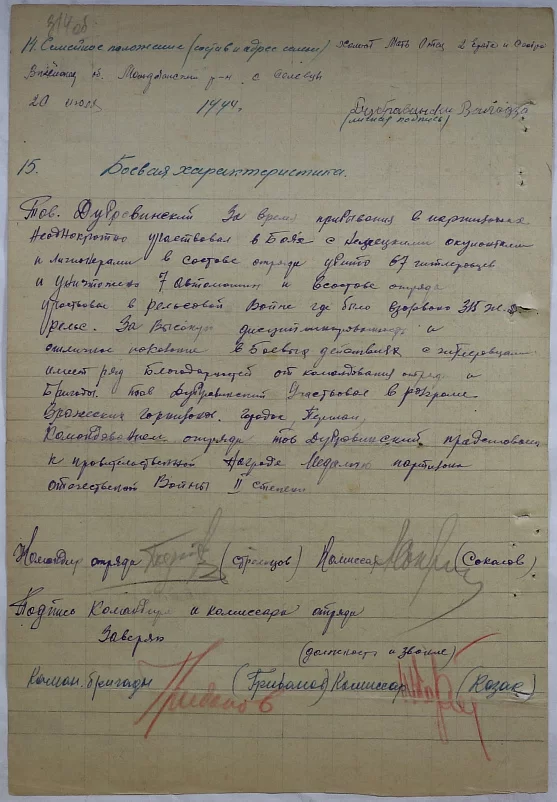 314 об
14. Семейное положение (состав и адрес семьи) Холост Мать Отец 2 брата и сестра
об. р-н. с.
20 июля 1944г.
(личная подпись)
15. Боевая характеристика.
Тов. Дубровинский За время пребывания в партизанах
неоднократно участвовал в Боях с немецкими окупантами
и в составе отряда убито 67 гитлеровцев
и уничтожено 7 Автомашин и Всостав отряда
участвовал в рельсовой Войне где было взорвано 315 ж.д
рельс. За Высокую дисциплинированность и
отличное показание в Боевых действиях с
имеет ряд Благодарностей от командования отряда и
Бригады. Тов Дубровинский Участвовал в разгроме
Вражеских гарнизонов.
Командованием отряда тов Дубровинский представлен
к правительственной Награде Медалью партизана
отечественной Войны II степени
Командир отряда (Стрельцов) Комиссар (Соколов)
Подпись Командира и комиссара отряда
Заверяю
(должность и звание)
Коман. бригады (Грибанов) Комиссар (Козак)